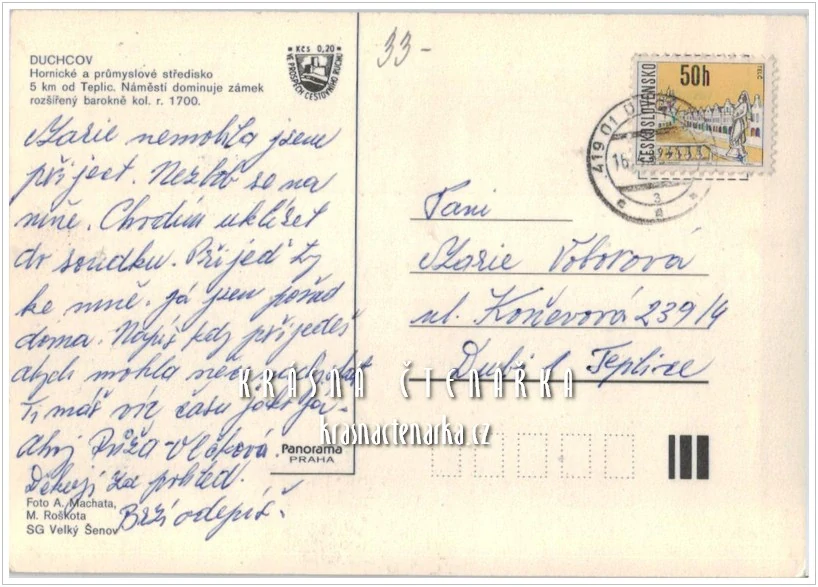 DUCHCOV
Hornické a průmyslové středisko
5 km od Teplic. Náměstí dominuje zámek
rozšířený barokně kol. r. 1700.
Kčs 0,20
VE PROSPĚCH CESTOVNÍHO RUCHU
33-
ČESKOSLOVENSKO
50h
419 01
16.
Marie nemohla jsem
přijet. Nezlob se na
mně. Chodím uklízet
do soudku. Přijeď ty
ke mně. Já jsem pořád
doma. Napiš kdy přijedeš
abych mohla něco
Ti máš víc času jako já-
Ahoj Růža Vlčková.
Děkuji za pohled.
Brzi odepiš.
Paní
Marie Voborová
ul. Koněvová 239/4
Dubí 1 Teplice
KRÁSNÁ ČTENÁŘKA
krasnactenarka.cz
Panorama
PRAHA
Foto A. Machata,
M. Roškota
SG Velký Šenov